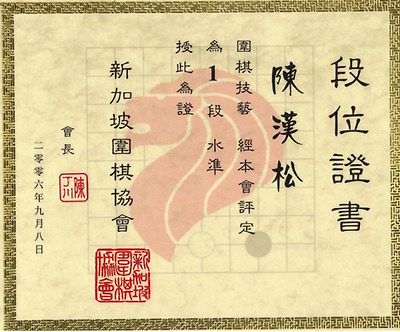 段位證書
陳漢松
圍棋技藝 經本會評定
為1段 水準
授此為證
新加坡圍棋協會
會長
二〇〇六年九月八日
新加坡圍棋協會